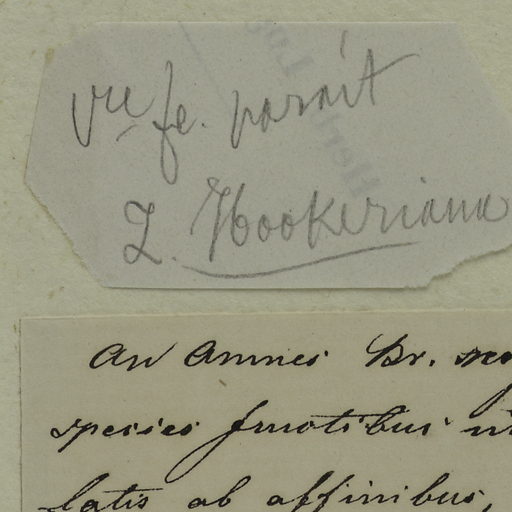 vue fe. parait
L. Hookeriana
an Amnes Br.
species fructibus
latis ab affinibus,